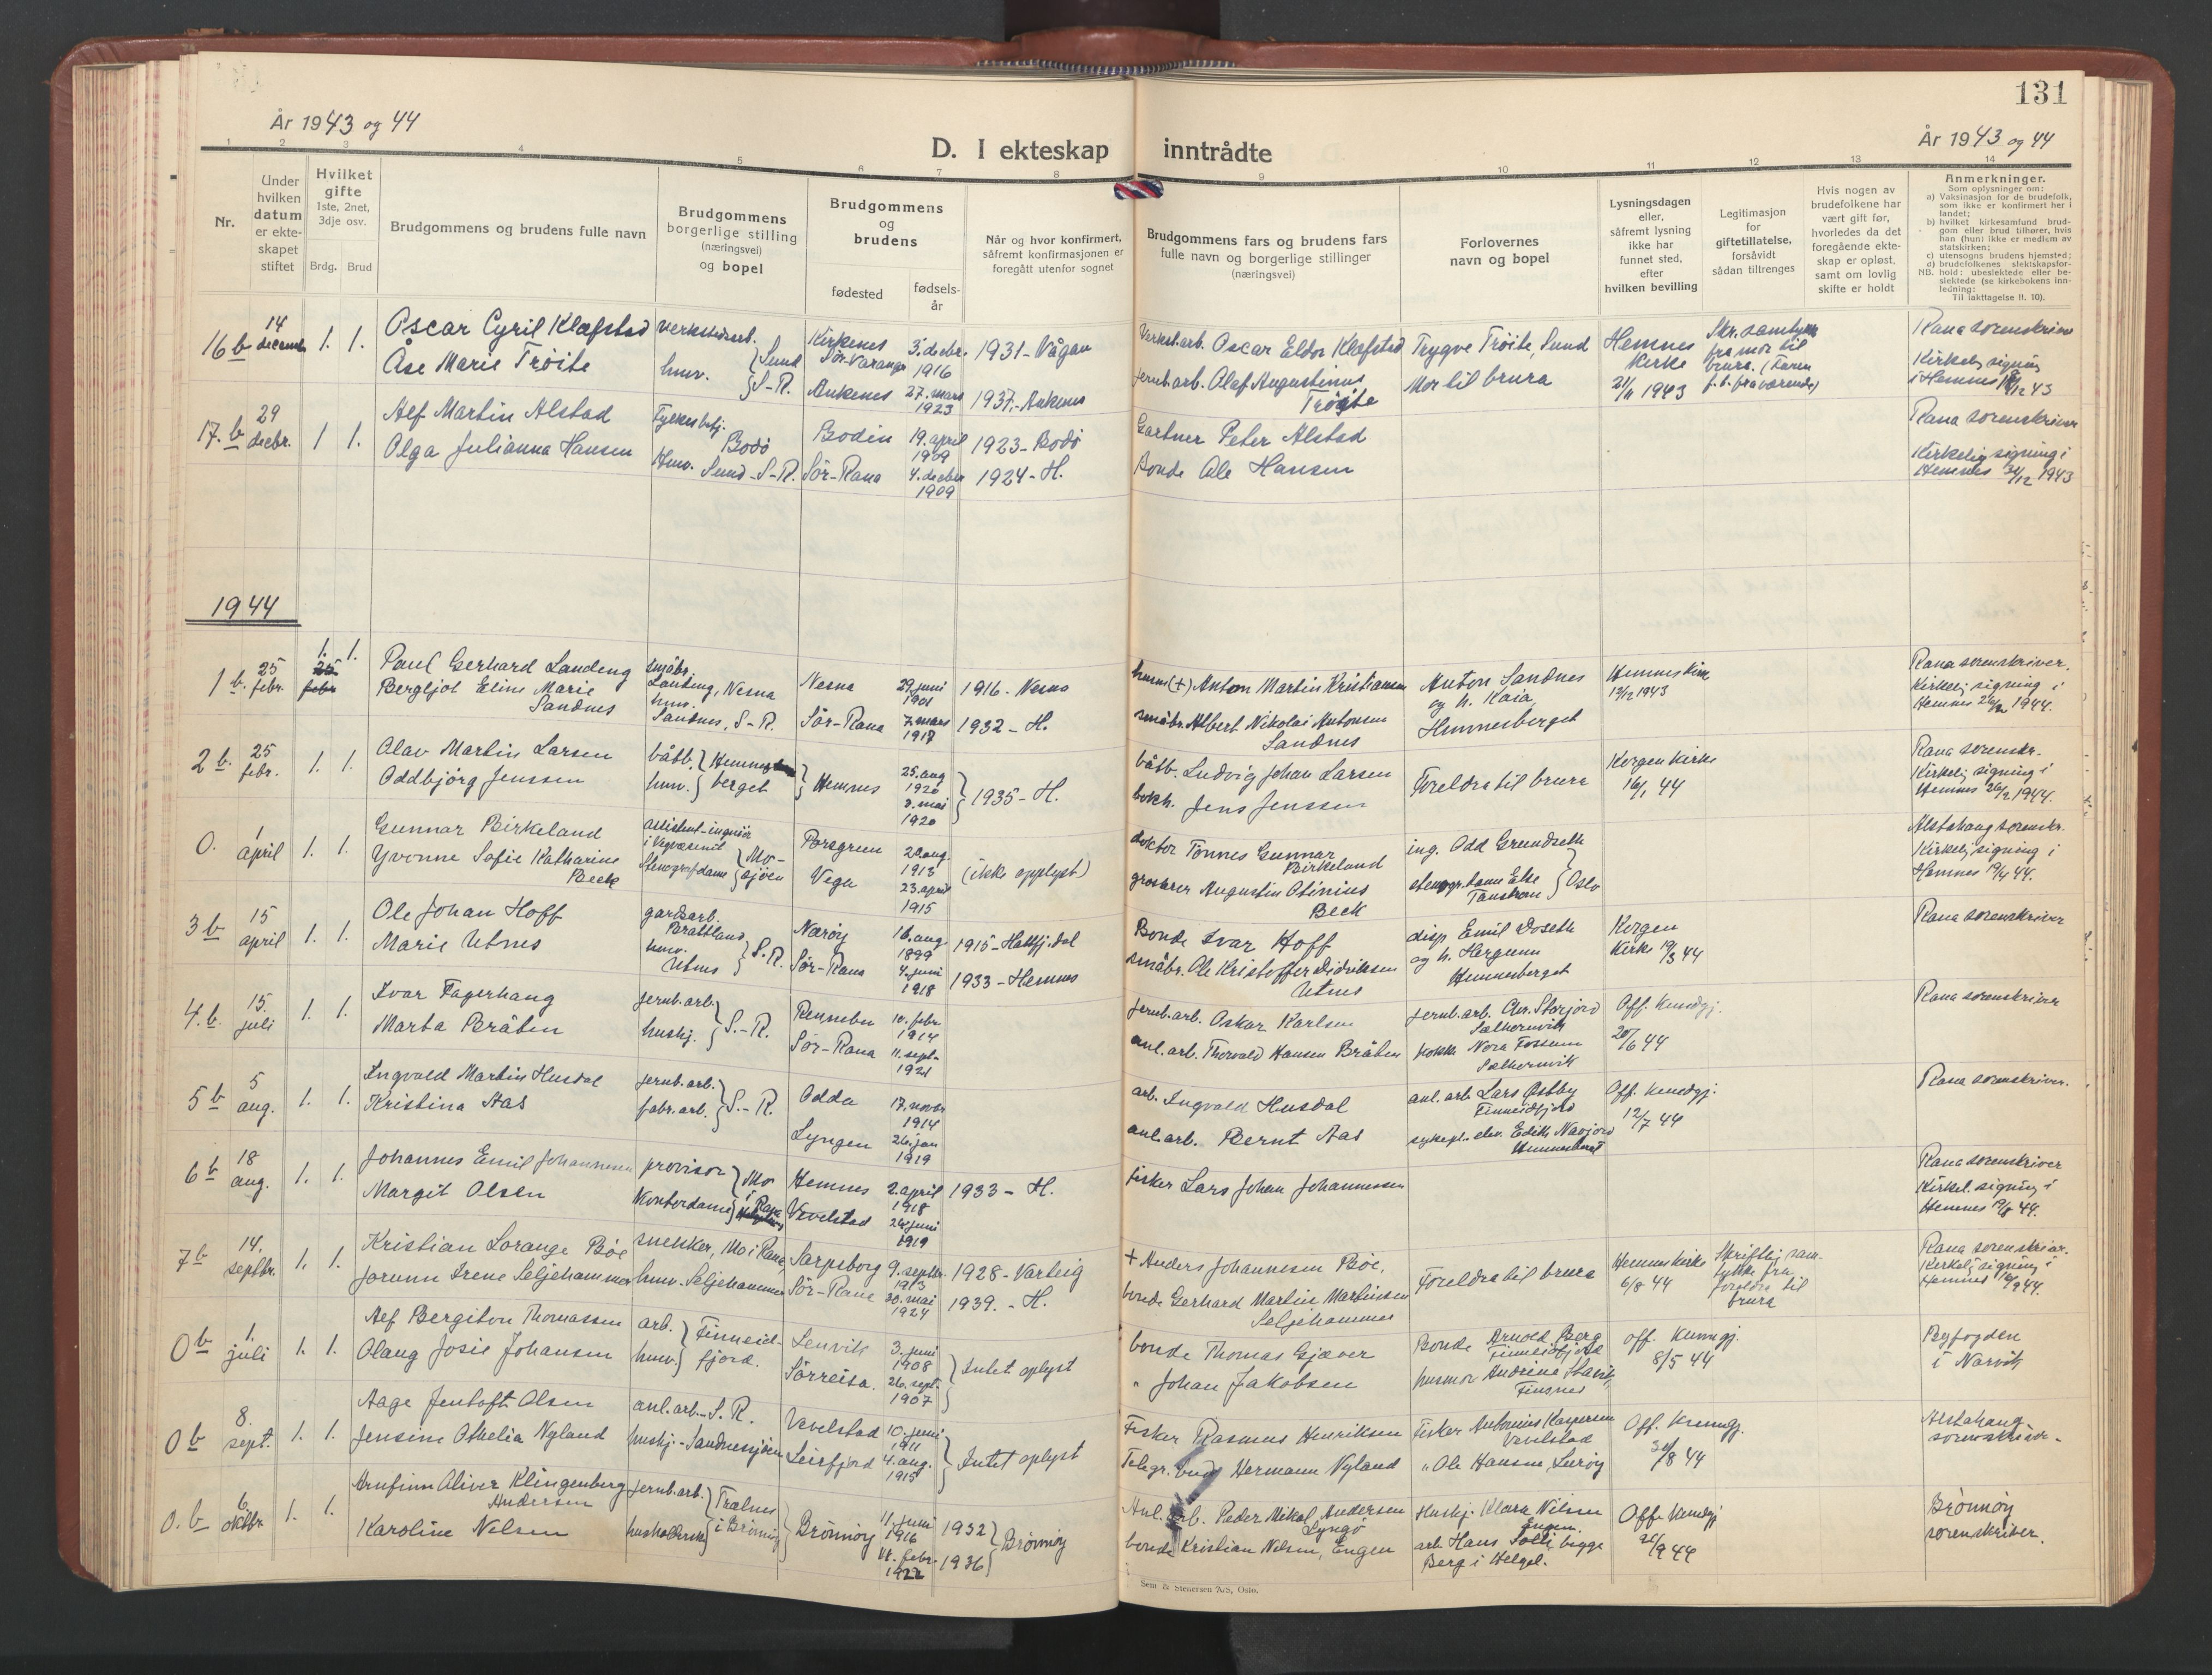 131
År 1943 og 44
D. I ekteskap inntrådte
År 1943 og 44
1 2 3 4 5 6 7 8 9 10 11 12 13 14
Nr.
Under hvilken datum er ekteskapet stiftet
Hvilket gifte 1ste, 2net, 3dje osv.
Brdg. Brud
Brudgommens og brudens fulle navn
Brudgommens borgerlige stilling (næringsvei) og bopel
Brudgommens og brudens
fødested
fødselsår
Når og hvor konfirmert, såfremt konfirmasjonen er foregått utenfor sognet
Brudgommens fars og brudens fars fulle navn og borgerlige stillinger (næringsvei)
Forlovernes navn og bopel
Lysningsdagen eller, såfremt lysning ikke har funnet sted, efter hvilken bevilling
Legitimasjon for giftetillatelse, forsåvidt sådan tiltrenges
Hvis nogen av brudefolkene har vært gift før, hvorledes da det foregående ekteskap er opløst, samt om lovlig skifte er holdt
Anmerkninger.
Som oplysninger om:
a) Vaksinasjon for de brudefolk, som ikke er konfirmert her i landet;
b) hvilket kirkesamfund brudgom eller brud tilhører, hvis han (hun) ikke er medlem av statskirken;
c) utensogns brudens hjemsted;
d) brudefolkenes slektskapsforhold: ubeslektede eller beslektede (se kirkebokens innledning:
NB. Til iakttagelse II. 10).
16 b 14 decemb 1. 1. Oscar Cyril Klæfstad verkstedarb. Kirkenes Sør-Varanger 3. decbr. 1916 1931 - Vågan Verkst.arb. Oscar Eldor Klæfstad Trygve Tröite, Sund Hemnes kirke 21/11 1943 Skr. samtykke fra mor til brura. (Faren f.t. fraværende) Rana sorenskriver
Åse Marie Tröite husv. Sund S-R. Ankenes 27. mars 1923 1937 - Ankenes Jernb.arb. Olaf Augustinus Tröite Mor til brura Kirkelig signing i Hemnes /12 43
17. b 29 decbr. 1 1. Alf Martin Alstad Fylkesbetj. Bodö Bodin 19. april 1909 1923 - Bodö Gartner Peter Alstad Rana sorenskriver
Olga Julianna Hansen Husv. Sund - S-R. Sör-Rana 4. decber 1909 1924 - H. Bonde Ole Hansen Kirkelig signing i Hemnes 31/12 1943
1944
1 b. 25 febr. 1. 1. Paul Gerhard Landeng småbr. Landeng, Nesna Nesna 29. juni 1901 1916 - Nesna husm (+) Anton Martin Kristiansen Anton Sandnes og h. Kaia, Hemnesberget Hemnes kirke 12/12 1943 Rana sorenskriver.
Bergljot Eline Marie Sandnes husv. Sandnes, S-R. Sör-Rana 7. mars 1917 1932 - H. småbr. Albert Nikolai Antonsen Sandnes Kirkelig signing i Hemnes 26/2 1944.
2 b. 25 febr. 1. 1. Olav Martin Larsen båtb. Hemnesberget Hemnes 25. aug 1920 1935 - H. båtb. Ludvig Johan Larsen Foreldra til brura Korgen kirke 16/1 44 Rana sorenskr.
Oddbjörg Jenssen husv. mai 1920 bokh. Jens Jenssen Kirkelig signing i Hemnes 26/2 1944.
0. 1 april 1. 1. Gunnar Birkeland assistent-ingeniör i Vegvesenet Mosjöen Porsgrunn aug. 1913 (ikke opplyst) doktor Tönnes Gunnar Birkeland ing. Odd Grundseth Oslo Alstahaug sorenskr.
Yvonne Sofie Katharine Beck Stenografdame Vega 23. april 1915 grosserer Augustin Otinius Beck stenogr.dame Else Kirkelig signing i Hemnes /4 44.
3 b 15 april 1. 1. Ole Johan Hoff gardsarb. Brattland Næröy 16. aug. 1899 1915 - Hattfj.dal Bonde Ivar Hoff disp Emil Doseth og h. Hemnesberget Korgen kirke 19/3 44 Rana sorenskriver
Marie Utnes husv. Utnes S.R. Sör-Rana 4. juni 1918 1933 - Hemnes småbr. Ole Kristoffer Didriksen Utnes
4. b. 15. juli 1. 1. Ivar Fagerhaug jernb.arb. S.-R. Rennebu 10. febr. 1914 Jernb.arb. Oskar Karlsen Jernb.arb. Chr. Storjord Off. kunngj. 20/6 44 Rana sorenskriver
Marta Bråten hushj. Sör-Rana 11. sept. 1921 anl.arb. Thorvald Hansen Bråten kokke Nora Fossum
5 b 5 aug. 1. 1. Ingvald Martin Husdal jernb.arb. S.-R. Odda 17. novbr 1914 arb. Ingvald Husdal anl.arb. Lars Östby Finneidfjord Off. kunngj. 12/7 44 Rana sorenskriver.
Kristina Aas fabr.arb. Lyngen 26. jan 1919 anl.arb. Bernt Aas sykepl.elev. Edith Navjord Hemnesberget
6 b 18 aug. 1. 1. Johannes Emil Johannesen provisor Mo i Rana Hemnes 2. april 1918 1933 - H. fisker Lars Johan Johannessen Rana sorenskriver
Margit Olsen kontordame Vevelstad 24. juni 1919 Kirkel. signing i Hemnes /8 44.
7 b 14. septbr. 1. 1. Kristian Lorange Böe snekker, Mo i Rana Sarpsborg 9. septbr 1913 1928 - Varteig + Anders Johannesen Böe, Foreldra til brura Hemnes kirke 6/8 44 Skriftlig samtykke fra foreldre til brura Rana sorenskriver.
Jorunn Irene Seljehammer husv. Seljehammer Sör-Rana 30. mai 1924 1939. - H. bonde Gerhard Martin Martinsen Seljehammer Kirkelig signing i Hemnes 1944.
0 b 1. juli 1. 1. Alf Bergiton Thomassen arb. Finneidfjord. Lenvik 3. juni 1908 Intet oplyst bonde Thomas Gjæver Bonde Arnold Berg Finneidfjord off. Kunngj. 8/5 44 Byfogden i Narvik
Olaug Josie Johansen husv. Sörreisa. 26. sept. 1907 " Johan Jakobsen husmor Andrine Finsnes
0 b 8. sept. 1. 1. Aage Jentoft Olsen anl.arb. - S.R. Vevelstad 10. juni 1911 Intet oplyst Fisker Rasmus Henriksen Fisker Antonius Kaspersen Vevelstad Off. Kunngj. 30/8 44 Alstahaug sorenskriver
Jensine Othelia Nyland hushj. - Sandnessjöen Leirfjord 4. aug. 1915 Telegr.bud Hermann Nyland " Ole Hansen, Luröy
0. b 6 oktbr. 1. 1. Arnfinn Oliver Klingenberg Andersen Jernb.arb. Trælnes i Brönnöy Brönnöy 11. juni 1916 1932 Brönnöy Anl.arb. Peder Mikal Andersen Lyngö Hushj. Klara Nilsen Engen. Off. kunngj 25/9 44 Brönnöy sorenskriver.
Karoline Nilsen husholderske febr. 1922 1936 bonde Kristian Nilsen, Engen arb. Hans Solli begge Berg i Helgel.
Sem & Stenersen A/S, Oslo.